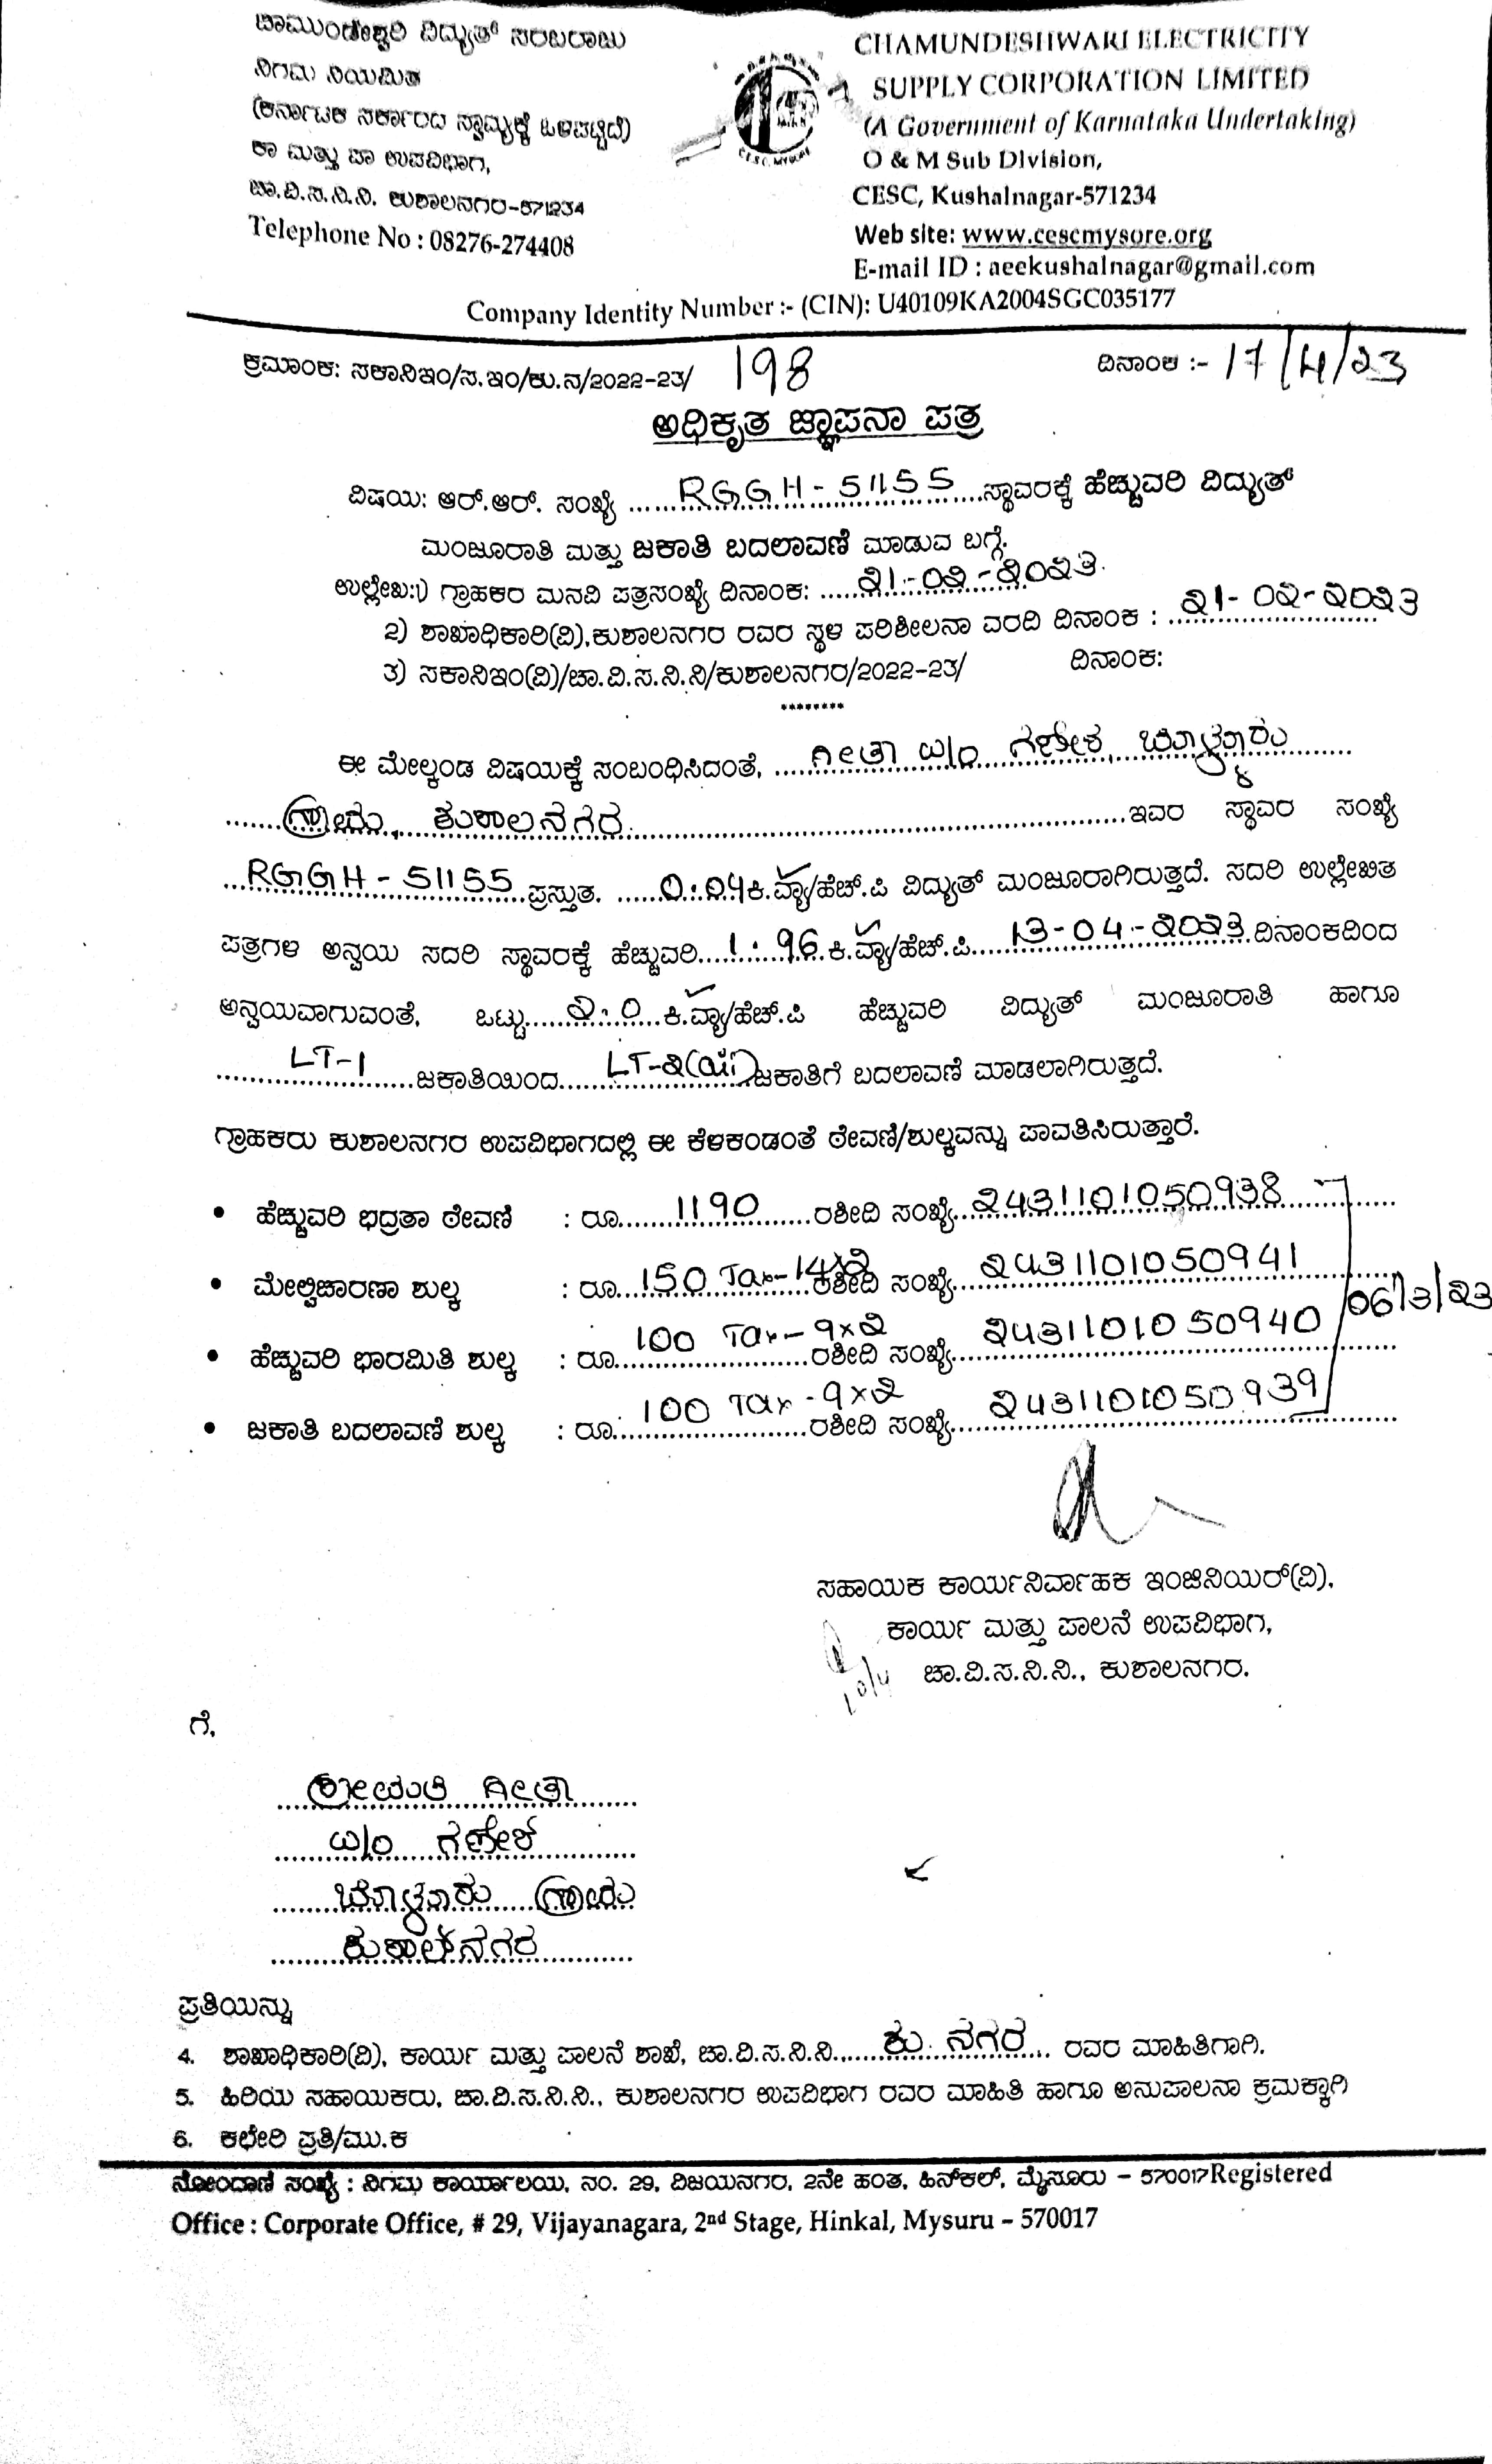 ಚಾಮುಂಡೇಶ್ವರಿ ವಿದ್ಯುತ್ ಸರಬರಾಜು
ನಿಗಮ ನಿಯಮಿತ
(ಕರ್ನಾಟಕ ಸರ್ಕಾರದ ಸ್ವಾಮ್ಯಕ್ಕೆ ಒಳಪಟ್ಟಿದೆ)
ಕಾ ಮತ್ತು ಪಾ ಉಪವಿಭಾಗ,
ಚಾ.ವಿ.ಸ.ನಿ.ನಿ. ಕುಶಾಲನಗರ-571234
Telephone No : 08276-274408
CHAMUNDESHWARI ELECTRICITY
SUPPLY CORPORATION LIMITED
(A Government of Karnataka Undertaking)
O & M Sub Division,
CESC, Kushalnagar-571234
Web site: www.cescmysore.org
E-mail ID : aeekushalnagar@gmail.com
Company Identity Number :- (CIN): U40109KA2004SGC035177
ಕ್ರಮಾಂಕ: ಸಕಾನಿಇಂ/ಸ.ಇಂ/ಕು.ನ/2022-23/ 198 ದಿನಾಂಕ :- 17/4/23
ಅಧಿಕೃತ ಜ್ಞಾಪನಾ ಪತ್ರ
ವಿಷಯ: ಆರ್.ಆರ್. ಸಂಖ್ಯೆ ......RGGH-51155......ಸ್ಥಾವರಕ್ಕೆ ಹೆಚ್ಚುವರಿ ವಿದ್ಯುತ್
ಮಂಜೂರಾತಿ ಮತ್ತು ಜಕಾತಿ ಬದಲಾವಣೆ ಮಾಡುವ ಬಗ್ಗೆ.
ಉಲ್ಲೇಖ:1) ಗ್ರಾಹಕರ ಮನವಿ ಪತ್ರಸಂಖ್ಯೆ ದಿನಾಂಕ: ......೨1-0೨-೨0೨೩.
2) ಶಾಖಾಧಿಕಾರಿ(ವಿ),ಕುಶಾಲನಗರ ರವರ ಸ್ಥಳ ಪರಿಶೀಲನಾ ವರದಿ ದಿನಾಂಕ : ೨1-0೨-೨0೨೩
3) ಸಕಾನಿಇಂ(ವಿ)/ಚಾ.ವಿ.ಸ.ನಿ.ನಿ/ಕುಶಾಲನಗರ/2022-23/ ದಿನಾಂಕ:
********
ಈ ಮೇಲ್ಕಂಡ ವಿಷಯಕ್ಕೆ ಸಂಬಂಧಿಸಿದಂತೆ, ......ಗೀತಾ W/o ಗಣೇಶ,
......ಗ್ರಾಮ, ಕುಶಾಲನಗರ......ಇವರ ಸ್ಥಾವರ ಸಂಖ್ಯೆ
...RGGH-51155...ಪ್ರಸ್ತುತ. ......0.04ಕಿ.ವ್ಯಾ/ಹೆಚ್.ಪಿ ವಿದ್ಯುತ್ ಮಂಜೂರಾಗಿರುತ್ತದೆ. ಸದರಿ ಉಲ್ಲೇಖಿತ
ಪತ್ರಗಳ ಅನ್ವಯ ಸದರಿ ಸ್ಥಾವರಕ್ಕೆ ಹೆಚ್ಚುವರಿ...1.96.ಕಿ.ವ್ಯಾ/ಹೆಚ್.ಪಿ...13-04-೨0೨3.ದಿನಾಂಕದಿಂದ
ಅನ್ವಯವಾಗುವಂತೆ, ಒಟ್ಟು......೨.0...ಕಿ.ವ್ಯಾ/ಹೆಚ್.ಪಿ ಹೆಚ್ಚುವರಿ ವಿದ್ಯುತ್ ಮಂಜೂರಾತಿ ಹಾಗೂ
......LT-1......ಜಕಾತಿಯಿಂದ......LT-೨(aii)ಜಕಾತಿಗೆ ಬದಲಾವಣೆ ಮಾಡಲಾಗಿರುತ್ತದೆ.
ಗ್ರಾಹಕರು ಕುಶಾಲನಗರ ಉಪವಿಭಾಗದಲ್ಲಿ ಈ ಕೆಳಕಂಡಂತೆ ಠೇವಣಿ/ಶುಲ್ಕವನ್ನು ಪಾವತಿಸಿರುತ್ತಾರೆ.
• ಹೆಚ್ಚುವರಿ ಭದ್ರತಾ ಠೇವಣಿ : ರೂ......1190......ರಶೀದಿ ಸಂಖ್ಯೆ...೨431101050938
• ಮೇಲ್ವಿಚಾರಣಾ ಶುಲ್ಕ : ರೂ...150 Tax-14x೨ ರಶೀದಿ ಸಂಖ್ಯೆ...೨431101050941
• ಹೆಚ್ಚುವರಿ ಭಾರಮಿತಿ ಶುಲ್ಕ : ರೂ...100 Tax-9x೨ ರಶೀದಿ ಸಂಖ್ಯೆ...೨431101050940 06/3/೨3
• ಜಕಾತಿ ಬದಲಾವಣೆ ಶುಲ್ಕ : ರೂ...100 Tax-9x೨ ರಶೀದಿ ಸಂಖ್ಯೆ...೨431101050939
ಸಹಾಯಕ ಕಾರ್ಯನಿರ್ವಾಹಕ ಇಂಜಿನಿಯರ್(ವಿ),
ಕಾರ್ಯ ಮತ್ತು ಪಾಲನೆ ಉಪವಿಭಾಗ,
10/4 ಚಾ.ವಿ.ಸ.ನಿ.ನಿ., ಕುಶಾಲನಗರ.
ಗೆ,
ಶ್ರೀಮತಿ ಗೀತಾ
W/o ಗಣೇಶ್
ಗ್ರಾಮ
ಕುಶಾಲ್‌ನಗರ
ಪ್ರತಿಯನ್ನು
4. ಶಾಖಾಧಿಕಾರಿ(ವಿ), ಕಾರ್ಯ ಮತ್ತು ಪಾಲನೆ ಶಾಖೆ, ಚಾ.ವಿ.ಸ.ನಿ.ನಿ......ಕು. ನಗರ... ರವರ ಮಾಹಿತಿಗಾಗಿ.
5. ಹಿರಿಯ ಸಹಾಯಕರು, ಚಾ.ವಿ.ಸ.ನಿ.ನಿ., ಕುಶಾಲನಗರ ಉಪವಿಭಾಗ ರವರ ಮಾಹಿತಿ ಹಾಗೂ ಅನುಪಾಲನಾ ಕ್ರಮಕ್ಕಾಗಿ
6. ಕಛೇರಿ ಪ್ರತಿ/ಮು.ಕ
ನೋಂದಾಣಿ ಸಂಖ್ಯೆ : ನಿಗಮ ಕಾರ್ಯಾಲಯ, ನಂ. 29, ವಿಜಯನಗರ, 2ನೇ ಹಂತ, ಹಿನ್‌ಕಲ್, ಮೈಸೂರು – 570017 Registered
Office : Corporate Office, # 29, Vijayanagara, 2nd Stage, Hinkal, Mysuru – 570017